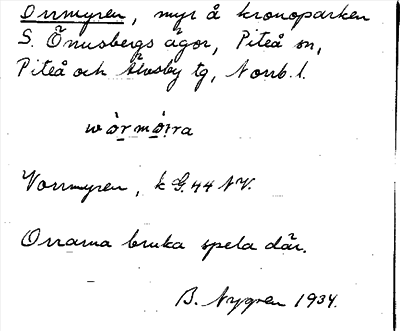 Orrmyren, myr å kronoparken
S. Önusbergs ägor, Piteå sn,
Piteå och Älvsby tg, Norrb. l.
wòrmòira
Vorrmyren, k G.44 NV.
Orrarna bruka spela där.
B. Nygren 1934.